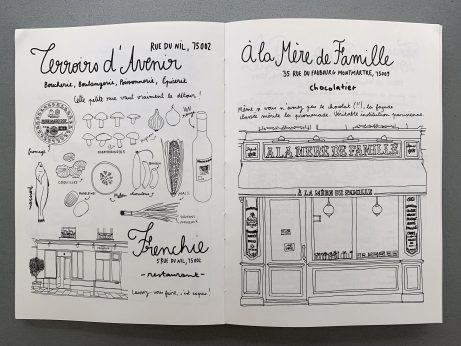 Terroirs d'Avenir
RUE DU NIL, 75002
Boucherie, Boulangerie, Poissonnerie, Épicerie
Cette petite rue vaut vraiment le détour !
fromage
CHAMPIGNONS
COQUILLES
MADELEINE
MAÏS
Frenchie
5 RUE DU NIL, 75002
-restaurant-
Laissez-vous faire, c'est exquis !
à la Mère de Famille
35 RUE DU FAUBOURG MONTMARTRE, 75009
chocolatier
Même si vous n'aimez pas le chocolat (!?), la façade
classée mérite la promenade. Véritable institution parisienne.
A LA MERE DE FAMILLE
À LA MÈRE DE FAMILLE